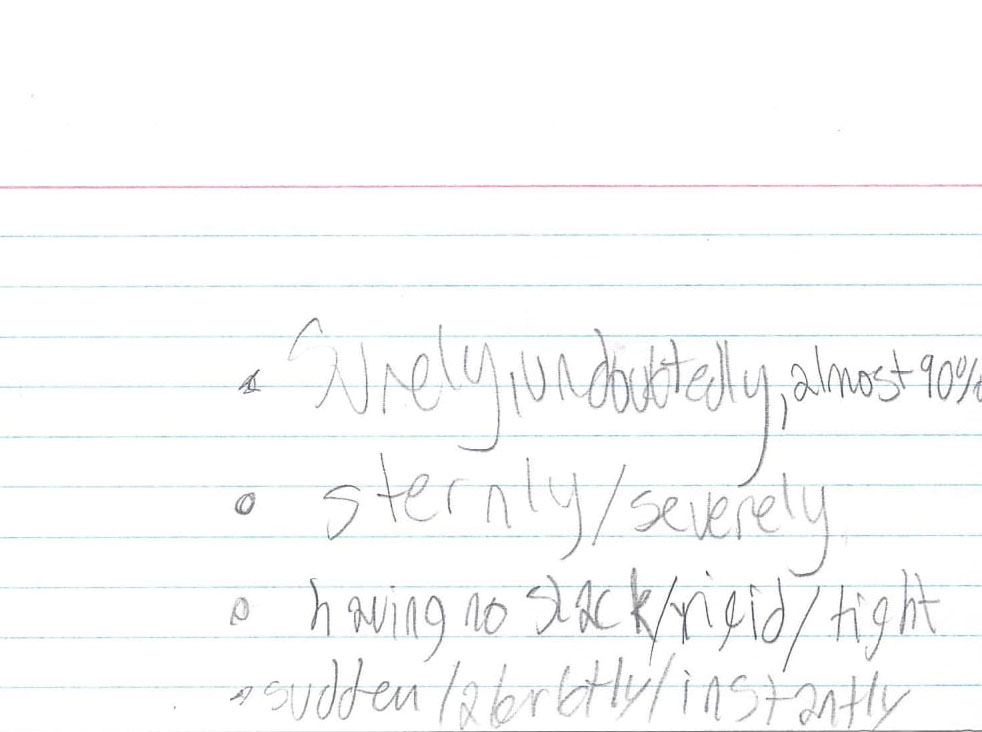 Surely, undoubtedly, almost 90%
sternly/severely
having no slack/rigid/tight
sudden/abrbtly/instantly